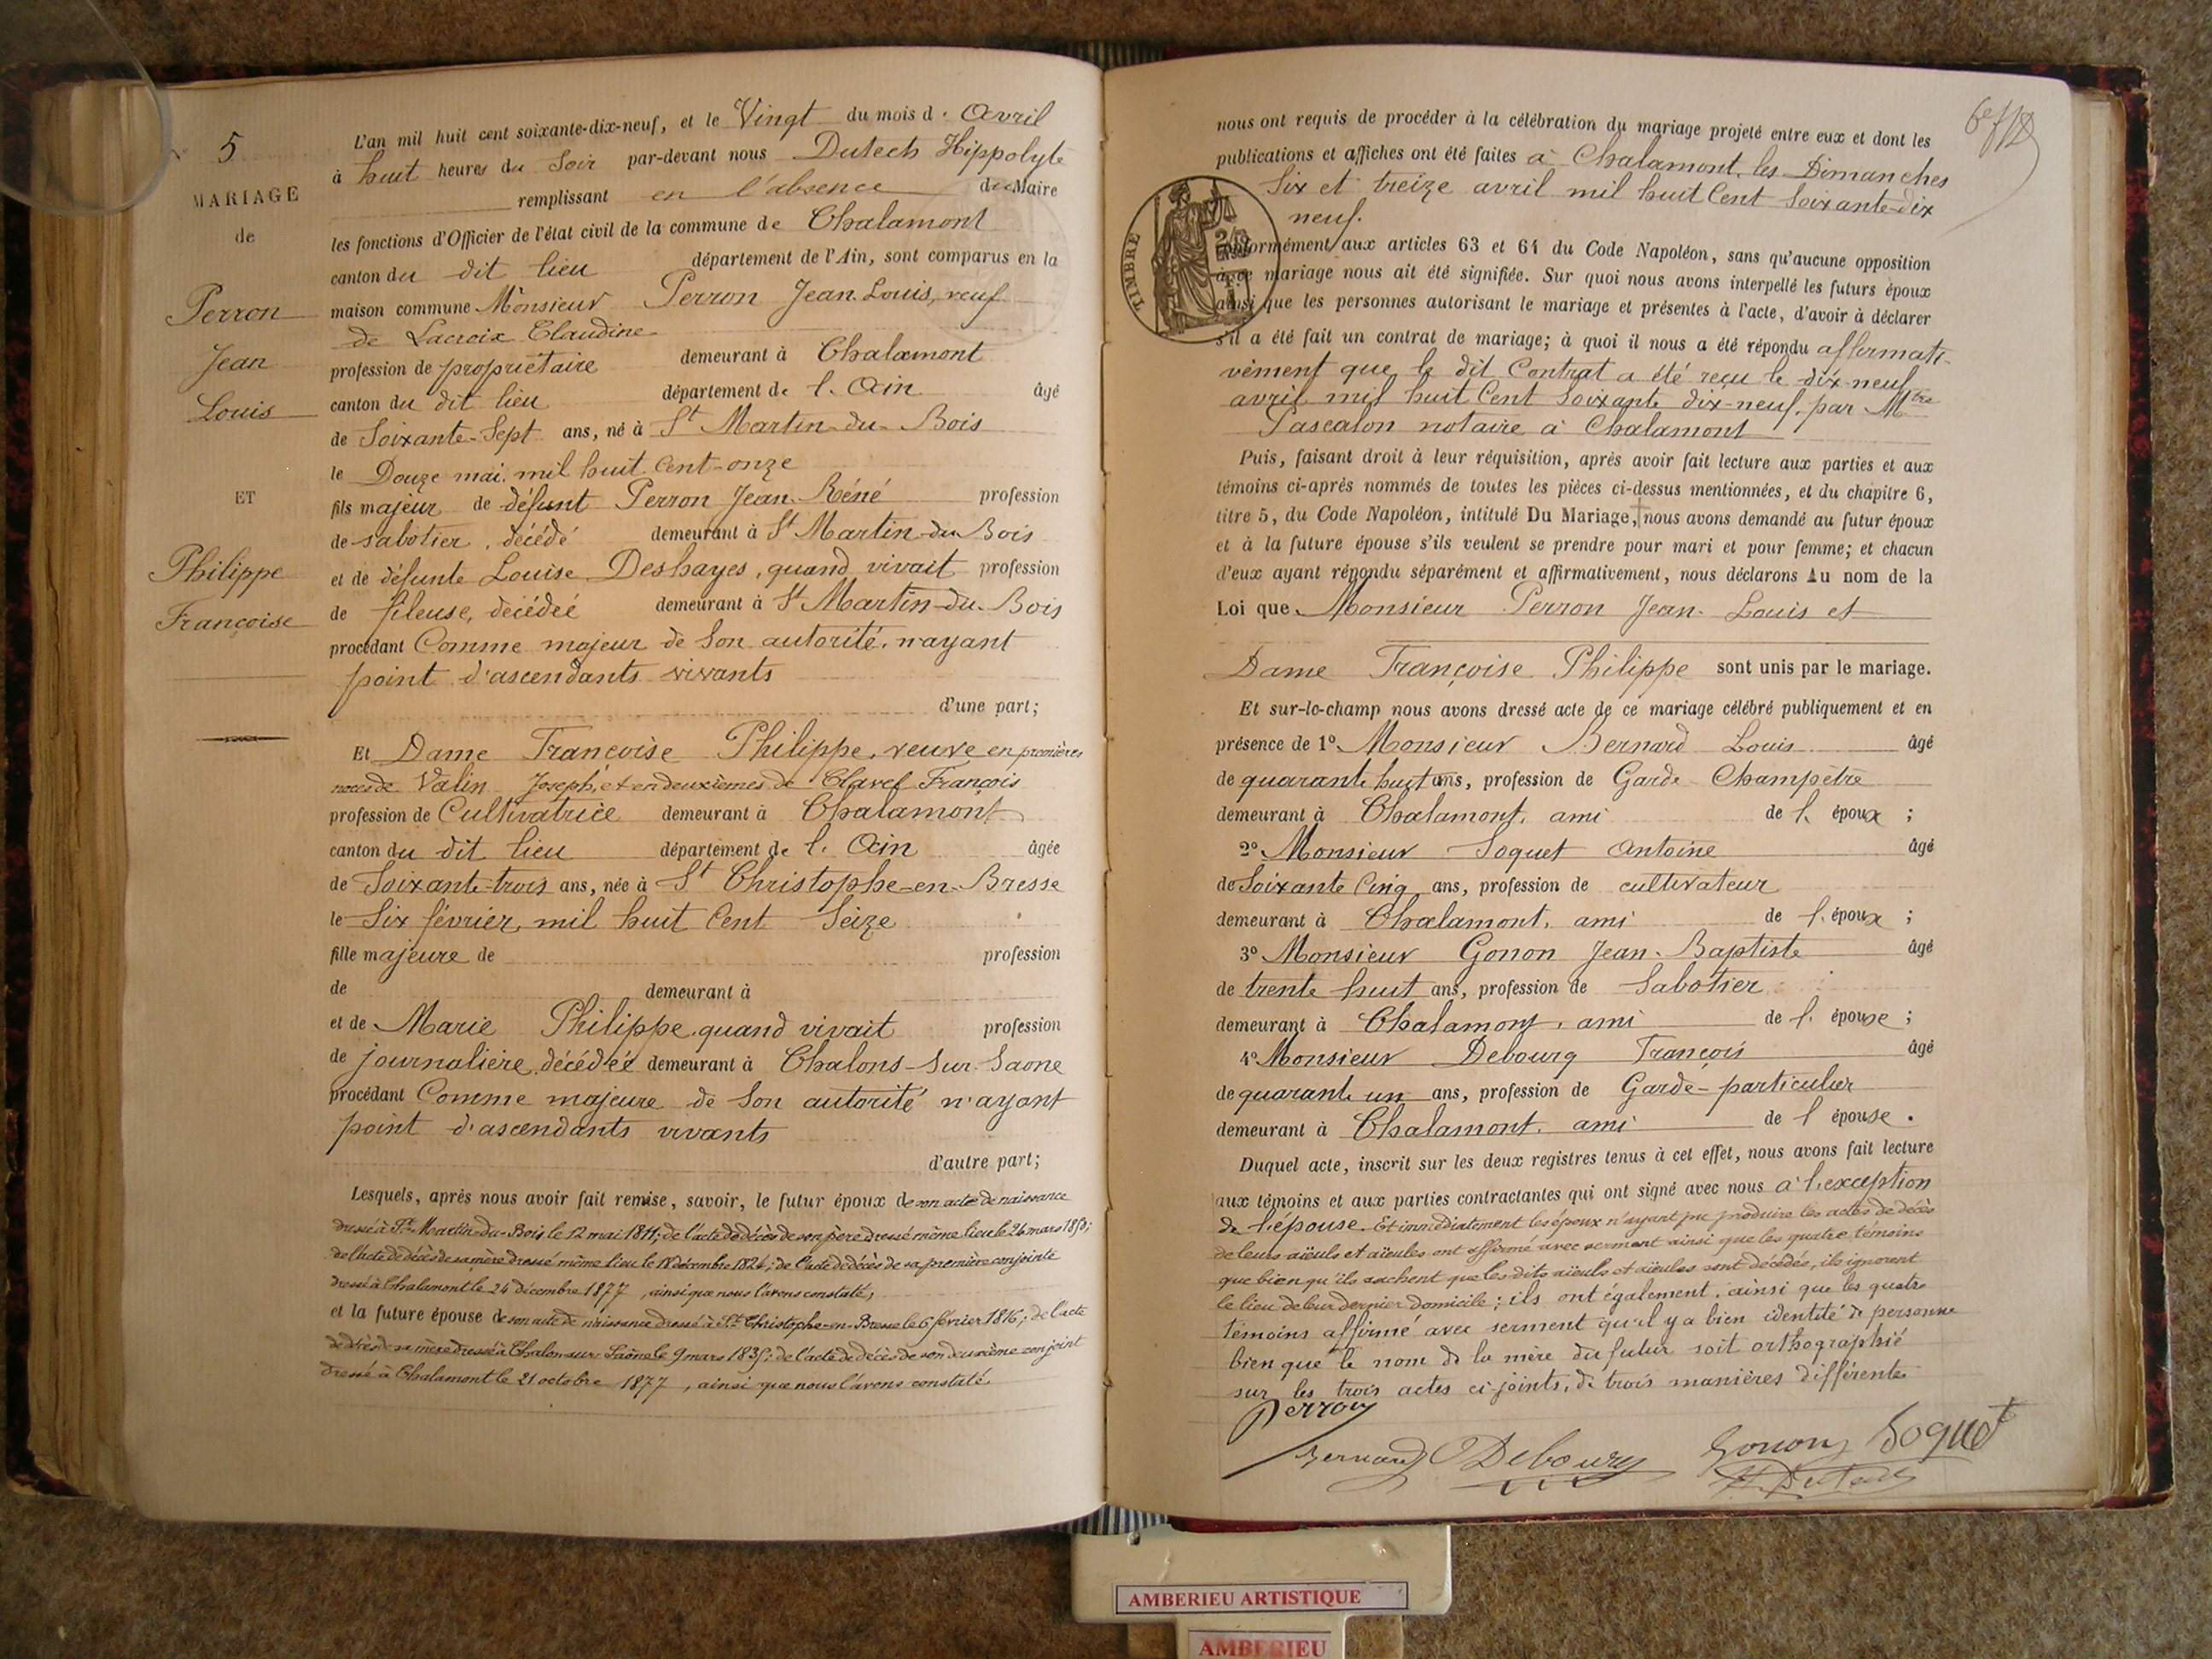 5
MARIAGE
de
Perron
Jean
Louis
ET
Philippe
Françoise
L'an mil huit cent soixante-dix-neuf, et le Vingt du mois d. Avril
à huit heures du Soir par-devant nous Dutech Hippolyte
remplissant en l'absence du Maire
les fonctions d'Officier de l'état civil de la commune de Chalamont
canton du dit lieu département de l'Ain, sont comparus en la
maison commune Monsieur Perron Jean Louis, veuf
de Lacroix Claudine
profession de propriétaire demeurant à Chalamont
canton du dit lieu département de l. Ain âgé
de Soixante-Sept ans, né à St Martin-du-Bois
le Douze mai mil huit Cent-onze
fils majeur de défunt Perron Jean-Réné profession
de sabotier, décédé demeurant à St Martin-du Bois
et de défunte Louise Deshayes, quand vivait profession
de fileuse, décédée demeurant à St Martin-du-Bois
procédant Comme majeur de Son autorité, n'ayant
point d'ascendants vivants
d'une part;
Et Dame Françoise Philippe, veuve en premières
noces de Valin Joseph, et en deuxièmes de Clavel François
profession de Cultivatrice demeurant à Chalamont
canton du dit lieu département de l. Ain âgée
de Soixante-trois ans, née à St Christophe-en-Bresse
le Six février, mil huit Cent Seize
fille majeure de profession
de demeurant à
et de Marie Philippe, quand vivait profession
de journalière, décédée demeurant à Chalons-Sur-Saone
procédant Comme majeure de Son autorité n'ayant
point d'ascendants vivants
d'autre part;
Lesquels, après nous avoir fait remise, savoir, le futur époux de son acte de naissance
dressé à St-Martin-du-Bois le 12 mai 1811; de l'acte de décès de son père dressé même lieu le 26 mars
de l'acte de décès de sa mère dressé même lieu le 18 décembre 1826; de l'acte de décès de sa première conjointe
dressé à Chalamont le 24 décembre 1877, ainsi que nous l'avons constaté;
et la future épouse de son acte de naissance dressé à St-Christophe-en-Bresse le 6 février 1816; de l'acte
de décès de sa mère dressé à Chalon-sur-Saône le 9 mars 1835; de l'acte de décès de son deuxième conjoint
dressé à Chalamont le 21 octobre 1877, ainsi que nous l'avons constaté.
nous ont requis de procéder à la célébration du mariage projeté entre eux et dont les
publications et affiches ont été faites à Chalamont, les Dimanches
Six et treize avril mil huit Cent Soixante-dix
neuf.
TIMBRE
conformément aux articles 63 et 64 du Code Napoléon, sans qu'aucune opposition
à ce mariage nous ait été signifiée. Sur quoi nous avons interpellé les futurs époux
ainsi que les personnes autorisant le mariage et présentes à l'acte, d'avoir à déclarer
s'il a été fait un contrat de mariage; à quoi il nous a été répondu affirmati-
vement que le dit Contrat a été reçu le dix-neuf
avril mil huit Cent Soixante dix-neuf, par Mtre
Pascalon notaire à Chalamont
Puis, faisant droit à leur réquisition, après avoir fait lecture aux parties et aux
témoins ci-après nommés de toutes les pièces ci-dessus mentionnées, et du chapitre 6,
titre 5, du Code Napoléon, intitulé Du Mariage, nous avons demandé au futur époux
et à la future épouse s'ils veulent se prendre pour mari et pour femme; et chacun
d'eux ayant répondu séparément et affirmativement, nous déclarons Au nom de la
Loi que Monsieur Perron Jean-Louis et
Dame Françoise Philippe sont unis par le mariage.
Et sur-le-champ nous avons dressé acte de ce mariage célébré publiquement et en
présence de 1º Monsieur Bernard Louis âgé
de quarante huit ans, profession de Garde Champêtre
demeurant à Chalamont, ami de l. époux ;
2º Monsieur Soquet Antoine âgé
de Soixante Cinq ans, profession de cultivateur
demeurant à Chalamont, ami de l. époux ;
3º Monsieur Gonon Jean-Baptiste âgé
de trente huit ans, profession de Sabotier
demeurant à Chalamont, ami de l. épouse ;
4º Monsieur Debourg François âgé
de quarante un ans, profession de Garde-particulier
demeurant à Chalamont, ami de l épouse.
Duquel acte, inscrit sur les deux registres tenus à cet effet, nous avons fait lecture
aux témoins et aux parties contractantes qui ont signé avec nous à l'exception
de l'épouse. Et immédiatement les époux n'ayant pu produire les actes de décès
de leurs aïeuls et aïeules ont affirmé avec serment ainsi que les quatre témoins
que bien qu'ils sachent que les dits aïeuls et aïeules sont décédés, ils ignorent
le lieu de leur dernier domicile; ils ont également, ainsi que les quatre
témoins affirmé avec serment qu'il y a bien identité de personne
bien que le nom de la mère du futur soit orthographié
sur les trois actes ci-joints, de trois manières différentes
Perron
Bernard Debourg Gonon Soquet
H. Dutech
AMBERIEU ARTISTIQUE
AMBERIEU